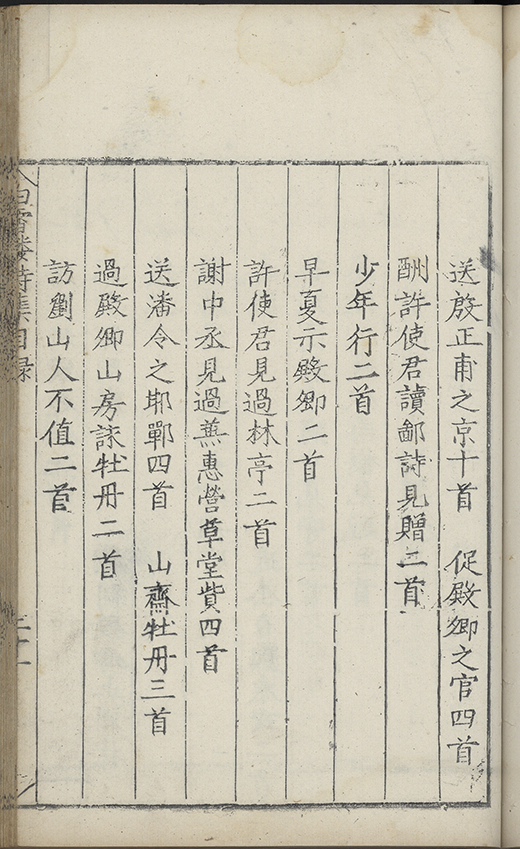 送殷正甫之京十首　促殿卿之官四首
酬許使君讀鄙詩見贈二首
少年行二首
早夏示殿卿二首
許使君見過林亭二首
謝中丞見過蕪惠營草堂貲四首
送潘令之邯鄲四首　山齋牡丹三首
過殿卿山房詠牡丹二首
訪劉山人不值二首
白雪樓詩集目録